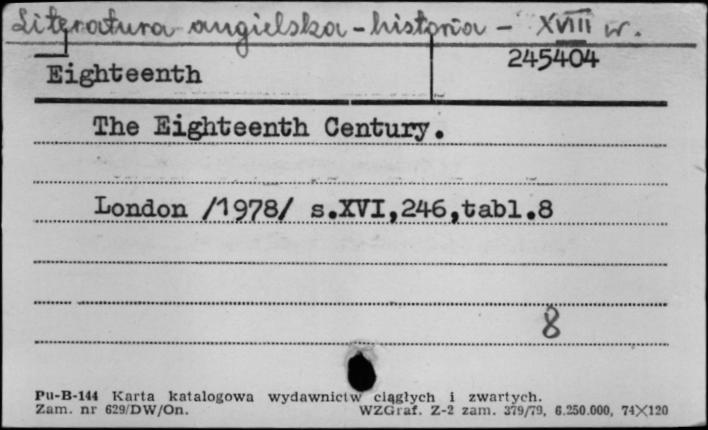 Literatura angielska - historia - XVIII w.
245404
Eighteenth
The Eighteenth Century.
London /1978/ s.XVI,246,tabl.8
8
Pu-B-144 Karta katalogowa wydawnictw ciągłych i zwartych.
Zam. nr 629/DW/On. WZGraf. Z-2 zam. 379/79, 6.250.000, 74X120